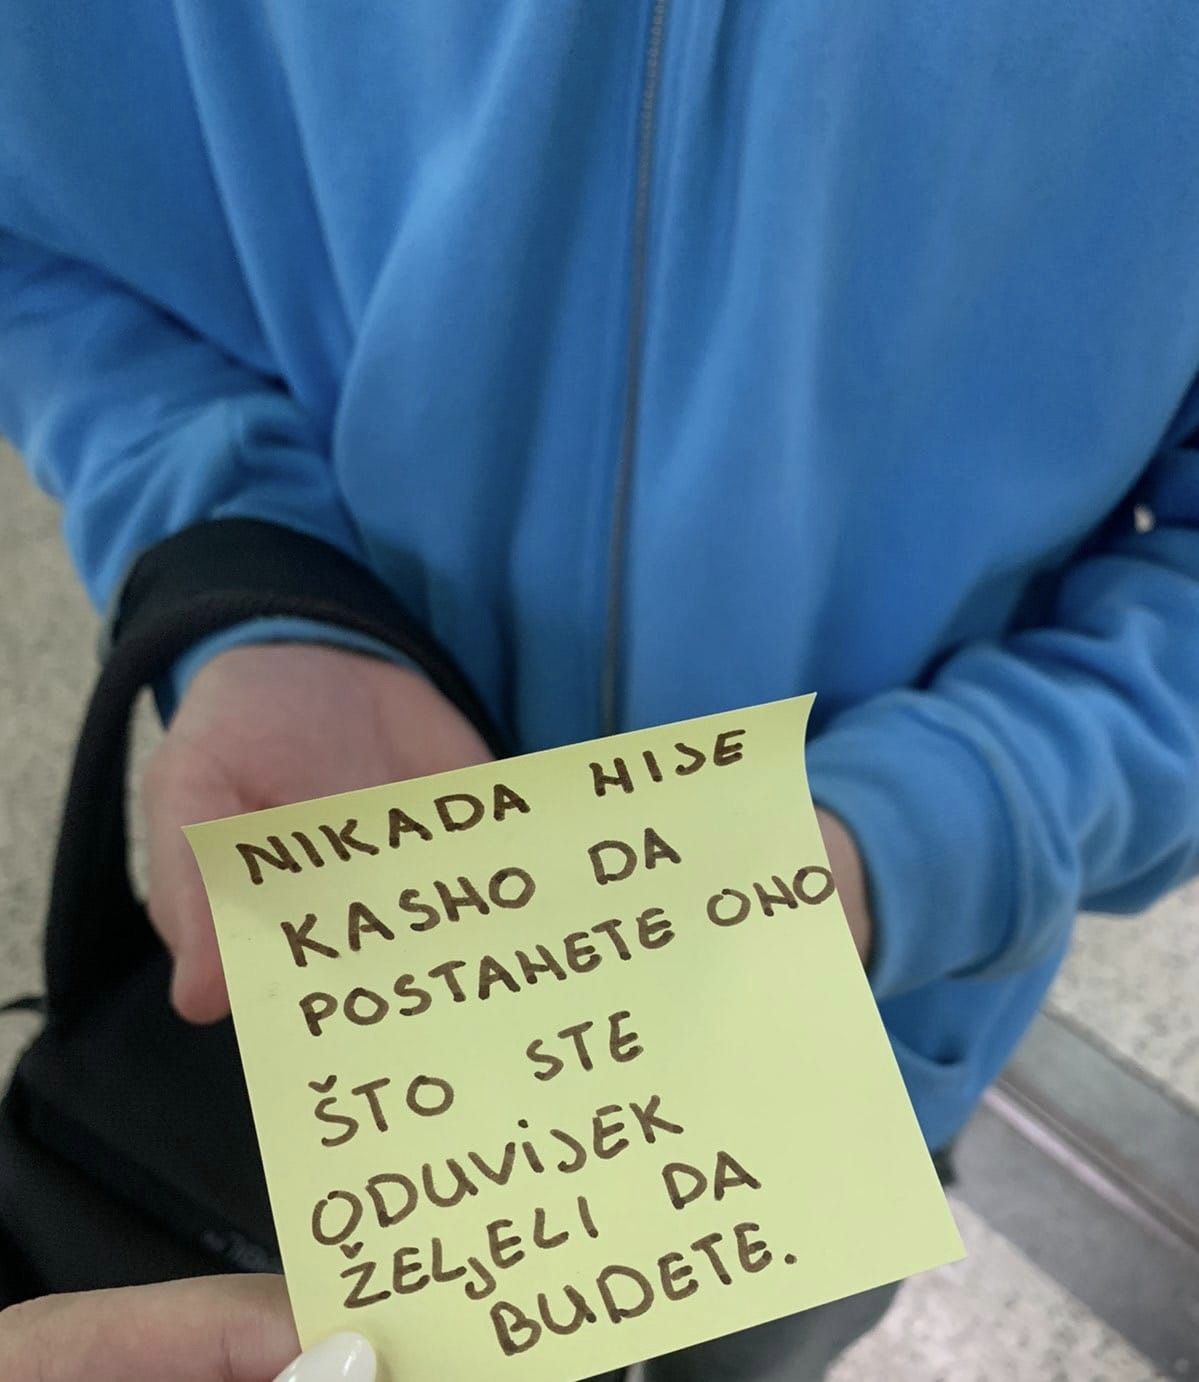 NIKADA NIJE
KASNO DA
POSTANETE ONO
ŠTO STE
ODUVIJEK
ŽELJELI DA
BUDETE.